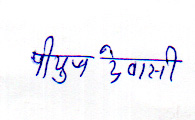 पीयुष देवासी